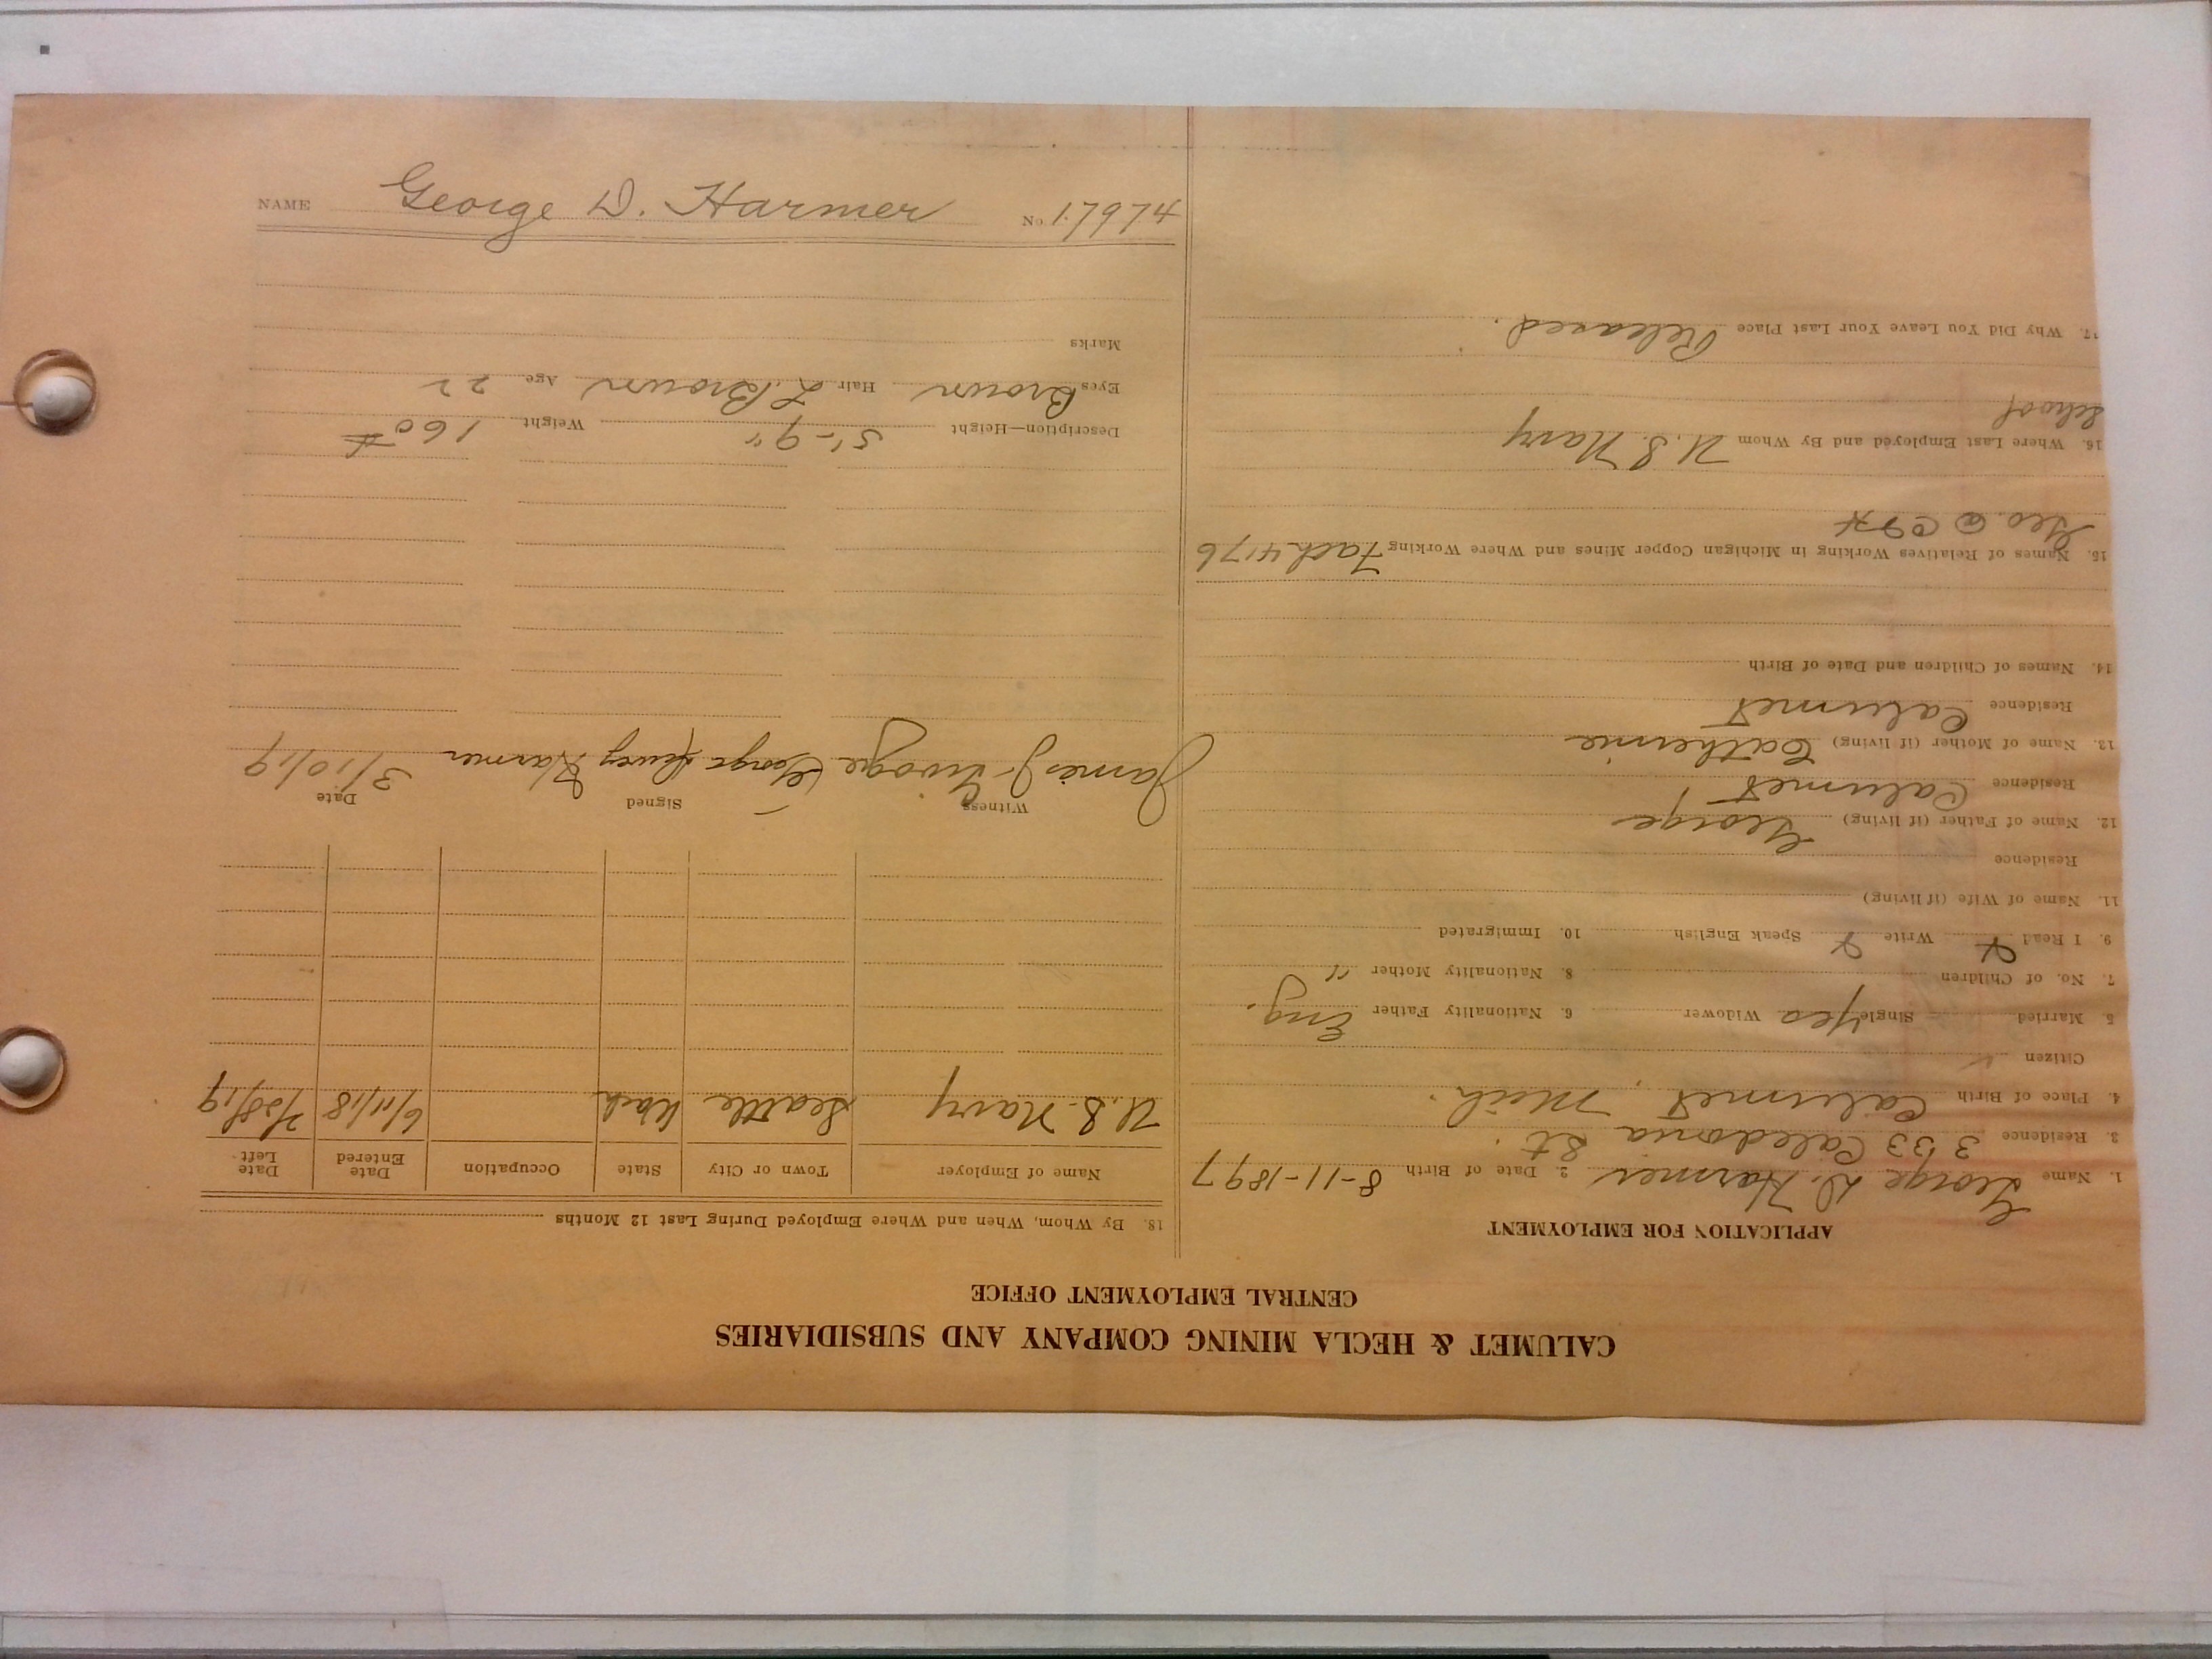 CALUMET & HECLA MINING COMPANY AND SUBSIDIARIES
CENTRAL EMPLOYMENT OFFICE
APPLICATION FOR EMPLOYMENT
1. Name George D. Harmer 2. Date of Birth 8-11-1897
3. Residence 333 Caledonia St.
4. Place of Birth Calumet, Mich.
Citizen
5. Married Single Yes Widower 6. Nationality Father Eng.
7. No. of Children 8. Nationality Mother "
9. I Read Write Speak English 10. Immigrated
11. Name of Wife (if living)
Residence
12. Name of Father (if living) George
Residence Calumet
13. Name of Mother (if living) Catherine
Residence Calumet
14. Names of Children and Date of Birth
15. Names of Relatives Working in Michigan Copper Mines and Where Working Fach 4176
Geo. @ C&H
16. Where Last Employed and By Whom U.S. Navy
School
17. Why Did You Leave Your Last Place Released.
18. By Whom, When and Where Employed During Last 12 Months
Name of Employer Town or City State Occupation Date Entered Date Left
U.S. Navy Seattle Wash 6/11/18 2/28/19
Witness Signed Date
James J. George Dewey Harmer 3/10/19
Description—Height 5'-9" Weight 160#
Eyes Brown Hair L. Brown Age 22
Marks
NAME George D. Harmer No 17974